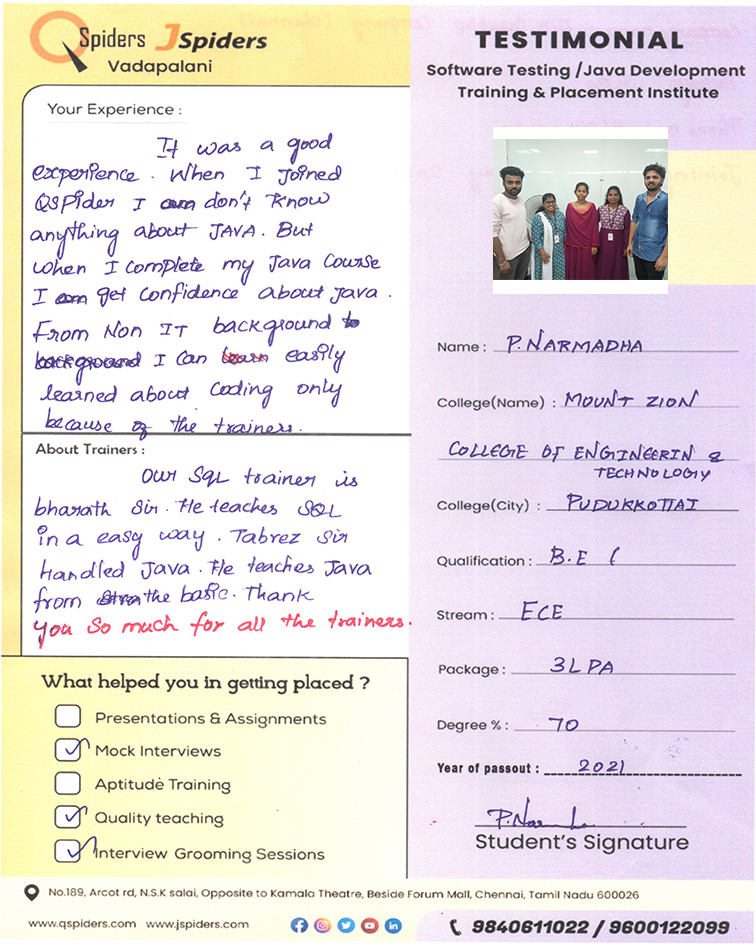 QSpiders JSpiders
Vadapalani
TESTIMONIAL
Software Testing /Java Development
Training & Placement Institute
Your Experience :
It was a good
experience. When I joined
QSPider I am don't know
anything about JAVA. But
when I complete my Java Course
I am get confidence about Java.
From Non IT background to
background I can learn easily
learned about coding only
because of the trainers.
About Trainers :
Our SQL trainer is
bharath Sir. He teaches SQL
in a easy way. Tabrez Sir
Handled Java. He teaches Java
from the basic. Thank
you So much for all the trainers.
What helped you in getting placed ?
Presentations & Assignments
Mock Interviews
Aptitude Training
Quality teaching
Interview Grooming Sessions
Name : P. NARMADHA
College(Name) : MOUNT ZION
COLLEGE OF ENGINEERIN &
TECHNOLOGY
College(City) : PUDUKKOTTAI
Qualification : B.E (
Stream : ECE
Package : 3LPA
Degree % : 70
Year of passout : 2021
P. Nar
Student's Signature
No.189, Arcot rd, N.S.K salai, Opposite to Kamala Theatre, Beside Forum Mall, Chennai, Tamil Nadu 600026
www.qspiders.com www.jspiders.com
9840611022 / 9600122099